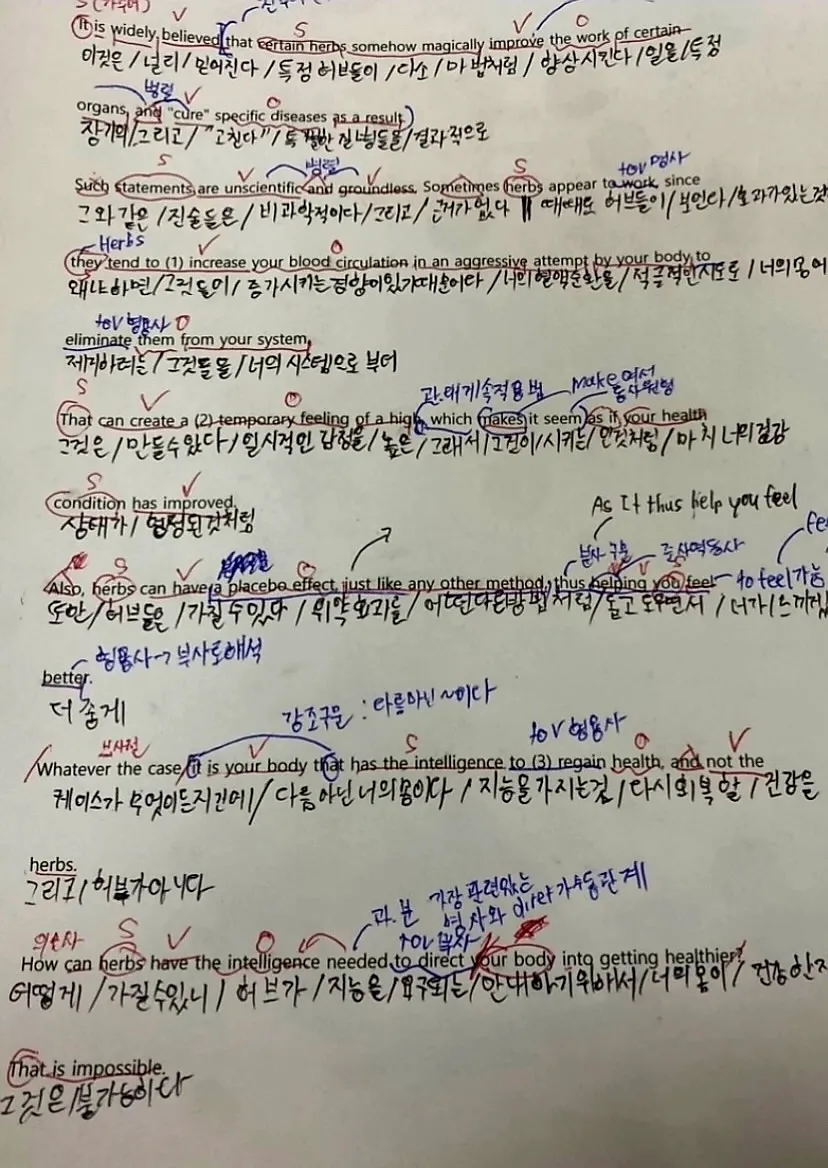 S (가주어)
V S V O
It is widely believed that certain herbs somehow magically improve the work of certain
이것은 / 널리 / 믿어진다 / 특정 허브들이 / 다소 / 마법처럼 / 향상시킨다 / 일을 / 특정
병렬 V O
organs, and "cure" specific diseases as a result.
장기의 / 그리고 / "고친다" / 특별한 질병들을 / 결과적으로
S V 병렬 V S toV 명사
Such statements are unscientific and groundless. Sometimes herbs appear to work, since
그와 같은 / 진술들은 / 비과학적이다 / 그리고 / 근거가 없다 // 때때로 허브들이 / 보인다 / 효과가 있는 것
Herbs V O
they tend to (1) increase your blood circulation in an aggressive attempt by your body to
왜냐하면 / 그것들이 / 증가시키는 경향이 있기 때문이다 / 너의 혈액순환을 / 적극적인 시도로 / 너의 몸에
toV 형용사 O
eliminate them from your system.
제거하려는 / 그것들을 / 너의 시스템으로부터
S V O 관.대 계속적용법 make 여서 동사원형
That can create a (2) temporary feeling of a high, which makes it seem as if your health
그것은 / 만들 수 있다 / 일시적인 감정을 / 높은 / 그래서 / 그것이 / 시키는 / 인것처럼 / 마치 너의 건강
S V
condition has improved.
상태가 / 형성된것처럼
As It thus help you feel
S V O 분사구문 준사역동사
Also, herbs can have a placebo effect, just like any other method, thus helping you feel to feel 가능
또한 / 허브들은 / 가질 수 있다 / 위약효과를 / 어떤 다른 방법처럼 / 돕고 도우면서 / 너가 / 느끼게
형용사→부사로해석
better.
더 좋게
강조구문 : 다름아닌 ~이다
부사절 V S toV 형용사 O V
Whatever the case, it is your body that has the intelligence to (3) regain health, and not the
케이스가 무엇이든지간에 / 다름아닌 너의 몸이다 / 지능을 가지는것 / 다시 회복할 / 건강을
herbs.
그리고 / 허브가 아니다
과.분 가장 관련있는
명사와 direct 가 수동관계
의문사 S V O toV 부사
How can herbs have the intelligence needed to direct your body into getting healthier?
어떻게 / 가질수있니 / 허브가 / 지능을 / 요구되는 / 안내하기위해서 / 너의 몸이 / 건강한
That is impossible.
그것은 / 불가능이다